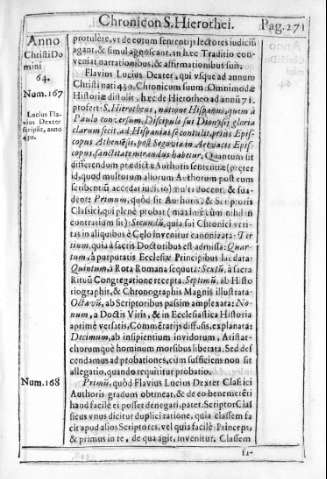 Chronicon S. Hierothei.
Pag. 271
Anno
Christi Do
mini
64.
Num. 167
Lucius Fla-
vius Dexter
scripsit, anno
430.
protulere, vt de eorum sententijs lectores iudiciū
agant, & simul agnoscant, an hæc Traditio con-
veniat narrationibus, & affirmationibus suis.
Flavius Lucius Dexter, qui vsque ad annum
Christi nati 430. Chronicum suum Omnimodæ
Historiæ distulit, hæc de Hierotheo ad annū 71.
profert: S. Hierotheus, natione Hispanus, quem à
Paulo conversum, Discipuli sui Dionysij gloria
clarum fecit, ad Hispanias se contulit, prius Epis-
copus Atheniēsis, post Segoviæ in Arevacis Epis-
copus, sanctitate mirandus habetur. Quantum sit
differendum prædicti Authoris sententiæ (præter
id, quod multorum aliorum Authorum post eum
scribentiū accedat iudicio) multi docent, & sua-
dent: Primum, quòd sit Authoris, & Scriptoris
Classici, qui plenè probat (maximè cùm nihil in
contrarium sit): Secundū, quia sui Chronici veri-
tas in aliquibus è Cœlo invenitur canonizata: Ter
tium, quia à sactis Doctoribus est admissa: Quar-
tum, à purpuratis Ecclesiæ Principibus laudata:
Quintum, à Rota Romana sequuta: Sextū, à sacra
Rituū Congregatione recepta: Septimū, ab Histo
riographis, & Chronographis Magnis illustrata:
Octavū, ab Scriptoribus passim amplexata: No-
num, a Doctis Viris, & in Ecclesiastica Historia
apprimè versatis, Commētarijs diffusis, explanata:
Decimum, ab insipientium invidorum, Aristar-
chorumque hominum morsibus liberata. Sed des
cendamus ad probationes, cùm sufficiens non sit
allegatio, quando requiritur probatio.
Num. 168
Primū, quòd Flavius Lucius Dexter Classici
Authoris gradum obtineat, & de eo benemeriti
haud facilè ei posset denegari, patet. Scriptor Clas
sicus vnus dicitur duplici ratione, quia classem fa-
cit apud alios Scriptores, vel quia facilè Princeps,
& primus in re, de qua agit, invenitur. Classem